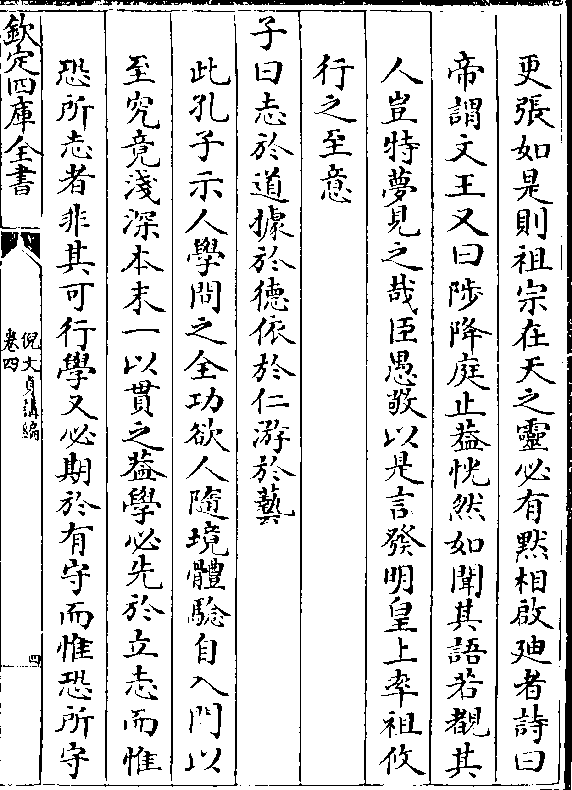 更張如是則祖宗在天之靈必有黙相啟廸者詩曰
帝謂文王又曰陟降庭止葢恍然如聞其語若覩其
人豈特夢見之哉臣愚敬以是言發明皇上率祖攸
行之至意
子曰志於道據於德依於仁游於藝
此孔子示人學問之全功欲人隨境體驗自入門以
至究竟淺深本末一以貫之葢學必先於立志而惟
恐所志者非其可行學又必期於有守而惟恐所守
欽定四庫全書
倪文貞講編
卷四
四